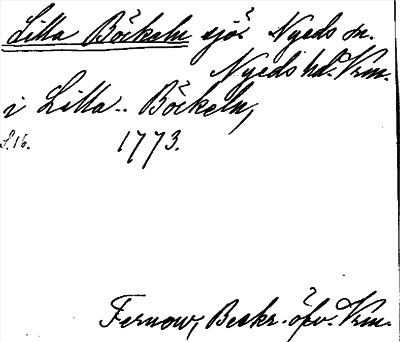 Lilla Böckeln sjö? Nyeds sn.
Nyeds hd. Vrm.
i Lilla.. Böckeln,
S. 16. 1773.
Fernow, Beskr. öfv. Vrm.